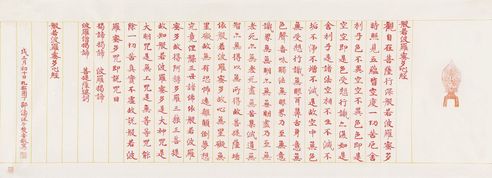 般若波羅蜜多心經
觀自在菩薩行深般若波羅蜜多
時照見五蘊皆空度一切苦厄舍
利子色不異空空不異色色即是
空空即是色受想行識亦復如是
舍利子是諸法空相不生不滅不
垢不淨不增不減是故空中無色
無受想行識無眼耳鼻舌身意無
色聲香味觸法無眼界乃至無意
識界無無明亦無無明盡乃至無
老死亦無老死盡無苦集滅道無
智亦無得以無所得故菩提薩埵
依般若波羅蜜多故心無罣礙無
罣礙故無有恐怖遠離顛倒夢想
究竟涅槃三世諸佛依般若波羅
蜜多故得阿耨多羅三藐三菩提
故知般若波羅蜜多是大神咒是
大明咒是無上咒是無等等咒能
除一切苦真實不虛故說般若波
羅蜜多咒即說咒曰
揭諦揭諦 波羅揭諦
波羅僧揭諦 菩提薩婆訶